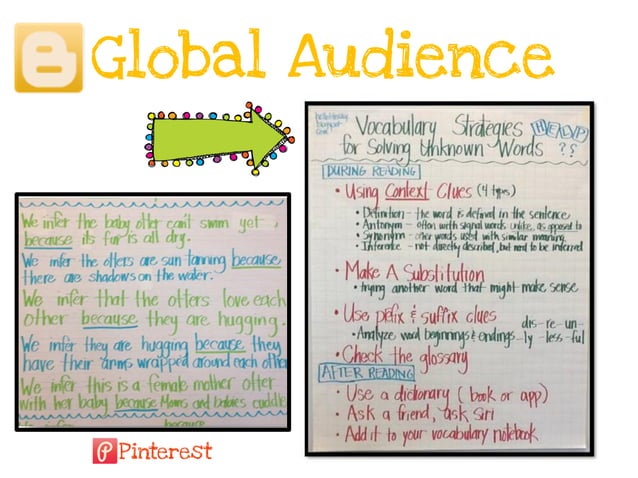 Global Audience
We infer the baby otter can't swim yet
because its fur is all dry.
We infer the otters are sun-tanning because
there are shadows on the water.
We infer that the otters love each
other because they are hugging.
We infer they are hugging because they
have their arms wrapped around each other
We infer this is a female mother otter
with her baby because Moms and babies cuddle
because
Pinterest
Vocabulary Strategies
for Solving Unknown Words
HELP
??
DURING READING
• Using Context Clues (4 types)
• Definition - the word is defined in the sentence
• Antonym - often with signal words unlike, as opposed to
• Synonym - other words used with similar meaning
• Inference - not directly described, but need to be inferred
• Make A Substitution
• trying another word that might make sense
• Use prefix & suffix clues
dis- re- un-
• Analyze word beginnings & endings -ly -less -ful
• Check the glossary
AFTER READING
• Use a dictionary (book or app)
• Ask a friend, ask Siri
• Add it to your vocabulary notebook